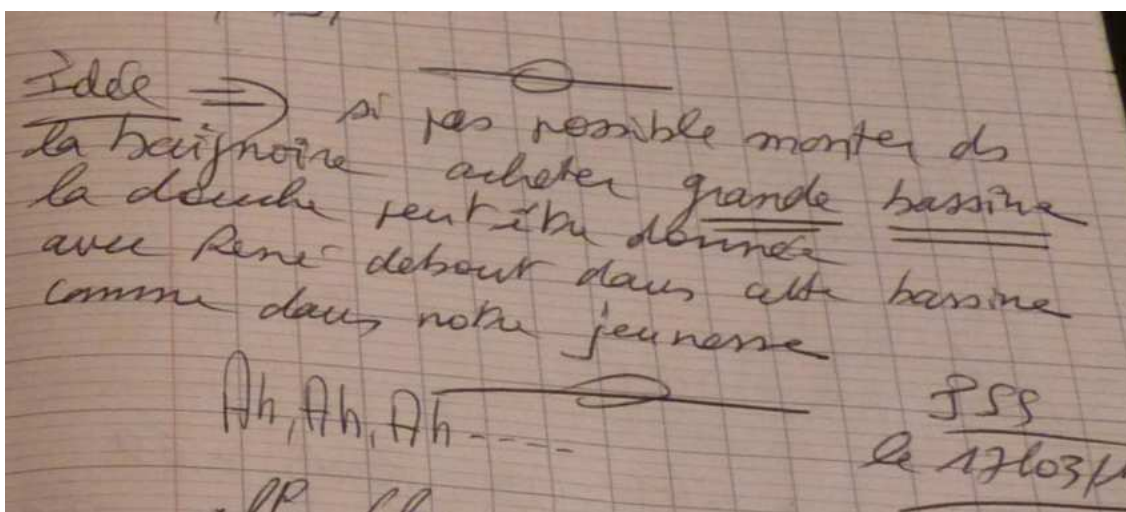 Idée => si pas possible monter ds
la baignoire acheter grande bassine
la douche peut être donnée
avec René debout dans cette bassine
comme dans notre jeunesse
Ah, Ah, Ah-----
le 17/03/